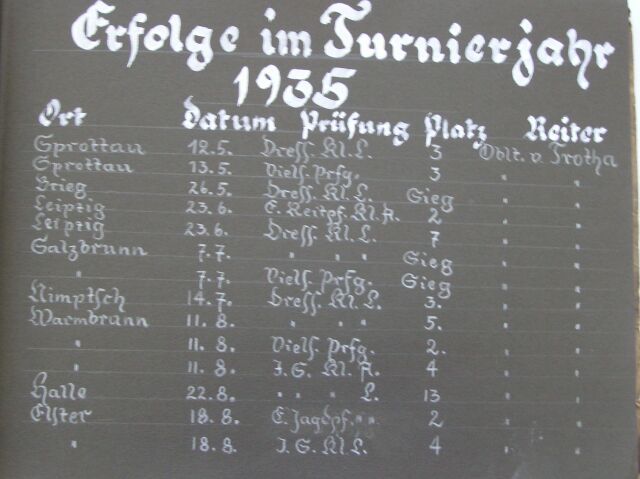 Erfolge im Turnierjahr
1935
Ort Datum Prüfung Platz Reiter
Sprottau 12.5. Dress. Kl. L. 3 Oblt. v. Trotha
Sprottau 13.5. Viels. Prfg. 3 " "
Brieg 26.5. Dress. Kl. L. Sieg " "
Leipzig 23.6. E. Reitpf. Kl. A. 2 " "
Leipzig 23.6. Dress. Kl. L. 7 " "
Salzbrunn 7.7. " " " Sieg " "
" 7.7. Viels. Prfg. Sieg " "
Nimptsch 14.7. Dress. Kl. L. 3. " "
Warmbrunn 11.8. " " " 5. " "
" 11.8. Viels. Prfg. 2. " "
" 11.8. J.S. Kl. A. 4 " "
Halle 22.8. " " " L. 13 " "
Elster 18.8. E. Jagdpf. " " 2 " "
" 18.8. J.S. Kl. L. 4 " "